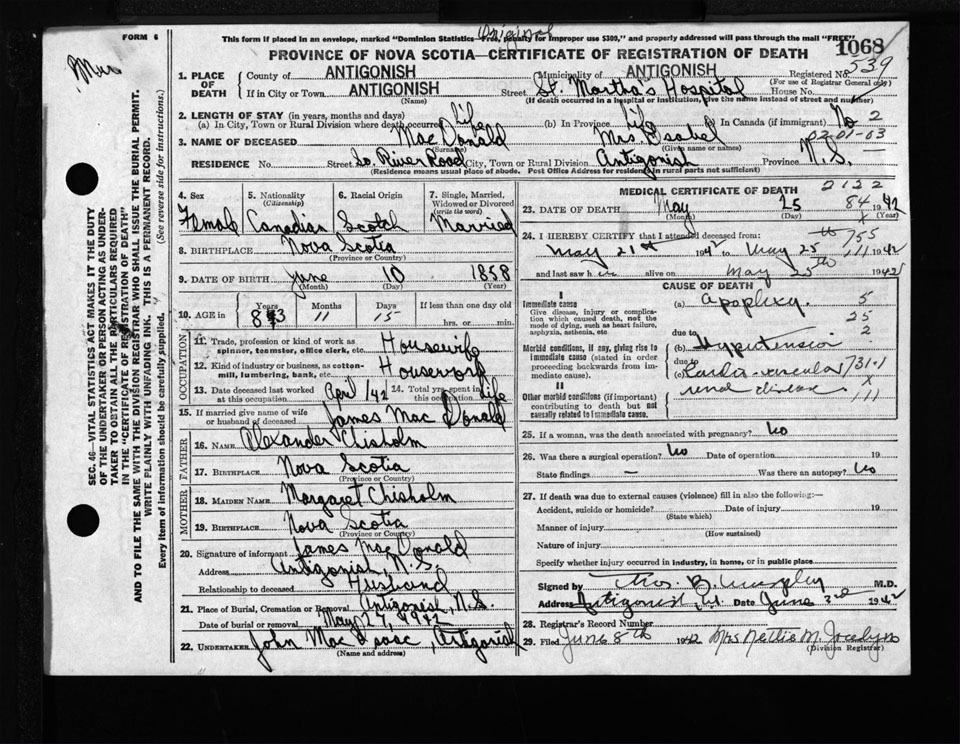 FORM 6
Original
This form if placed in an envelope, marked "Dominion Statistics—Free, penalty for improper use $300," and properly addressed will pass through the mail "FREE"
PROVINCE OF NOVA SCOTIA—CERTIFICATE OF REGISTRATION OF DEATH
1068
Mrs
1. PLACE OF DEATH County of ANTIGONISH Municipality of ANTIGONISH Registered No. 539
(For use of Registrar General only)
If in City or Town ANTIGONISH Street St. Martha's Hospital House No.
(Name) (If death occurred in a hospital or institution, give the name instead of street and number)
2. LENGTH OF STAY (in years, months and days)
(a) In City, Town or Rural Division where death occurred Life (b) In Province Life (c) In Canada (if immigrant) No 2
02-01-03
3. NAME OF DECEASED Mac Donald Mrs. Isabel
(Surname) (Given name or names)
RESIDENCE No. Street So. River Road City, Town or Rural Division Antigonish Province N.S.
(Residence means usual place of abode. Post Office Address for residents in rural parts not sufficient)
4. Sex Female
5. Nationality (Citizenship) Canadian
6. Racial Origin Scotch
7. Single, Married, Widowed or Divorced (write the word) Married
8. BIRTHPLACE Nova Scotia
(Province or Country)
9. DATE OF BIRTH June 10 1858
(Month) (Day) (Year)
10. AGE in Years 83 Months 11 Days 15 If less than one day old
hrs. or min.
OCCUPATION
11. Trade, profession or kind of work as spinner, teamster, office clerk, etc. Housewife
12. Kind of industry or business, as cotton-mill, lumbering, bank, etc. Housework
13. Date deceased last worked at this occupation April /42 14. Total yrs. spent in this occupation life
15. If married give name of wife or husband of deceased James Mac Donald
FATHER
16. NAME Alexander Chisholm
17. BIRTHPLACE Nova Scotia
(Province or Country)
MOTHER
18. MAIDEN NAME Margaret Chisholm
19. BIRTHPLACE Nova Scotia
(Province or Country)
20. Signature of informant James MacDonald
Address Antigonish, N.S.
Relationship to deceased Husband
21. Place of Burial, Cremation or Removal Antigonish, N.S.
Date of burial or removal May 27, 1942
22. UNDERTAKER John Mac Isaac, Antigonish
(Name and address)
MEDICAL CERTIFICATE OF DEATH 2122
23. DATE OF DEATH May 25 84 1942
(Month) (Day) (Year)
24. I HEREBY CERTIFY that I attended deceased from: 755
May 21st 1942 to May 25th 111 1942
and last saw h er alive on May 25th 1942
CAUSE OF DEATH
I
Immediate cause (a) Apoplexy. 5
Give disease, injury or complication which caused death, not the mode of dying, such as heart failure, asphyxia, asthenia, etc. 25
due to 2
Morbid conditions, if any, giving rise to immediate cause (stated in order proceeding backwards from immediate cause). (b) Hypertension
due to
(c) Cardio-vascular 731.1
renal disease x
II
Other morbid conditions (if important) contributing to death but not causally related to immediate cause. 111
25. If a woman, was the death associated with pregnancy? No
26. Was there a surgical operation? No Date of operation 19
State findings — Was there an autopsy? No
27. If death was due to external causes (violence) fill in also the following:—
Accident, suicide or homicide? Date of injury 19
(State which)
Manner of injury
(How sustained)
Nature of injury
Specify whether injury occurred in industry, in home, or in public place
Signed by Thos. B. Murphy M.D.
Address Antigonish Date June 3rd 1942
28. Registrar's Record Number
29. Filed June 8th 1942 Mrs Nellie M. Jocelyn
(Division Registrar)
SEC. 46—VITAL STATISTICS ACT MAKES IT THE DUTY
OF THE UNDERTAKER OR PERSON ACTING AS UNDER-
TAKER TO OBTAIN ALL THE PARTICULARS REQUIRED
IN THE "CERTIFICATE OF REGISTRATION OF DEATH"
AND TO FILE THE SAME WITH THE DIVISION REGISTRAR WHO SHALL ISSUE THE BURIAL PERMIT.
WRITE PLAINLY WITH UNFADING INK. THIS IS A PERMANENT RECORD.
Every item of information should be carefully supplied. (See reverse side for instructions.)